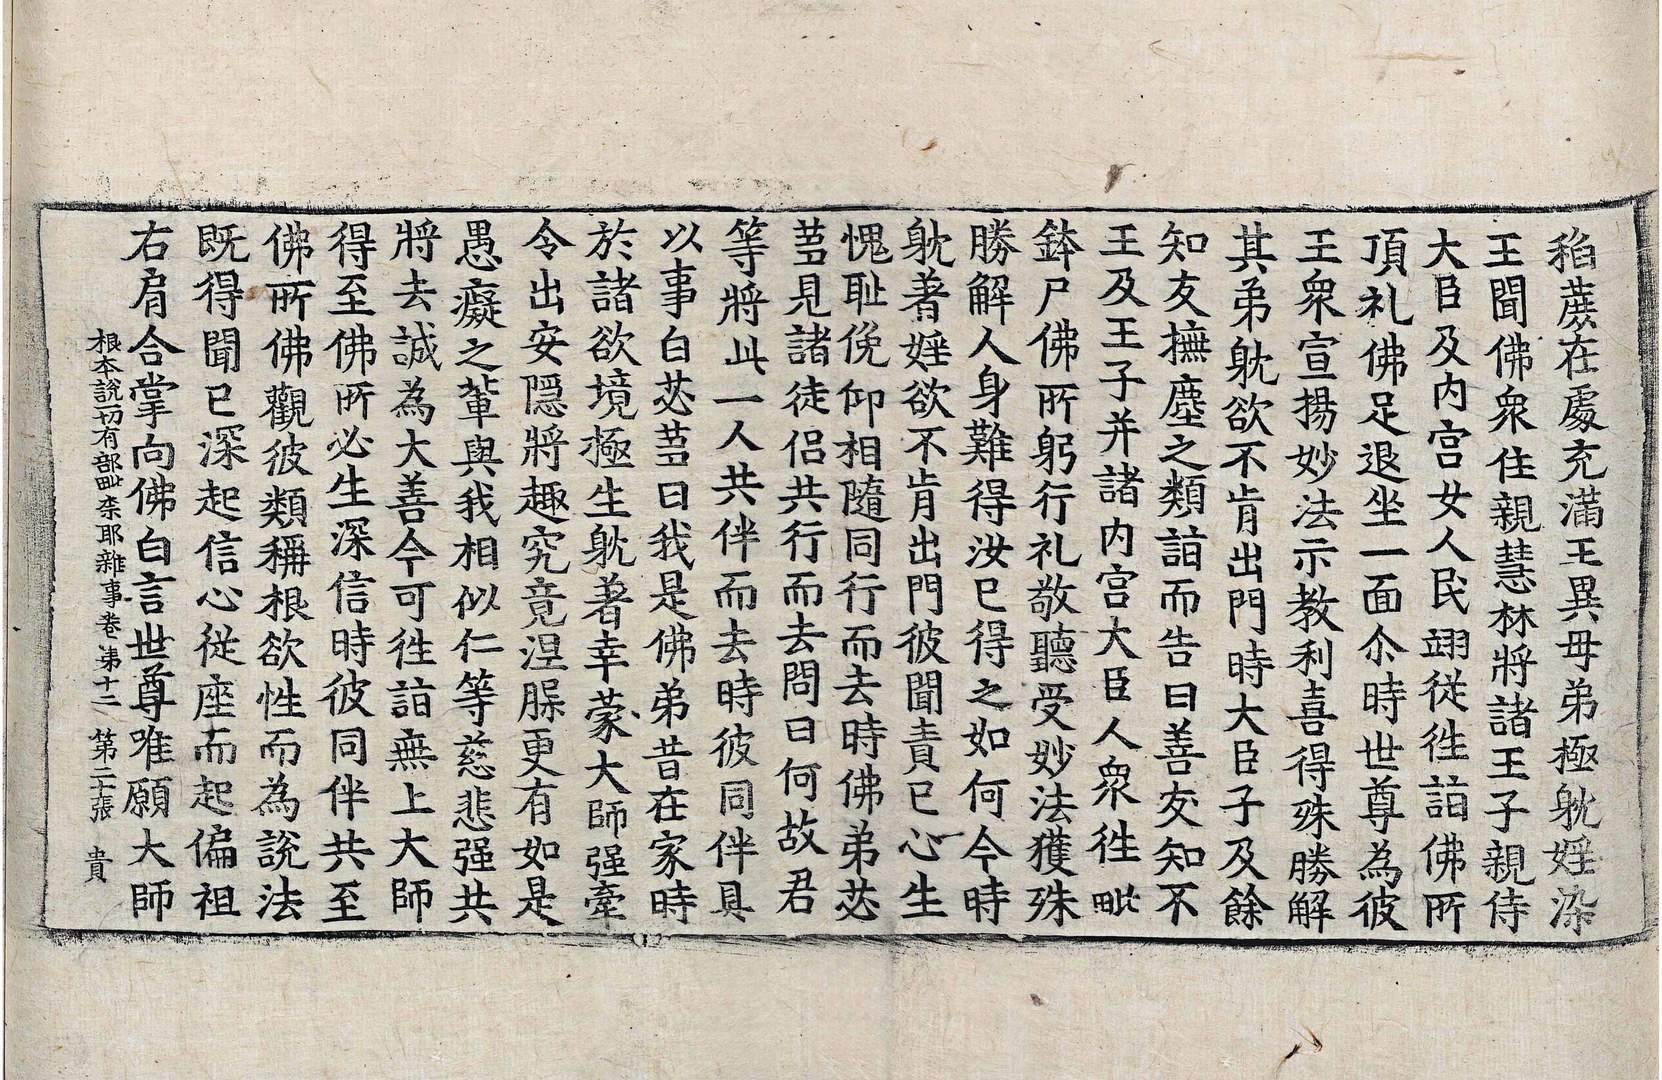 稻蔗在處充滿王異母弟極躭婬染
王聞佛衆住親慧林將諸王子親侍
大臣及内宫女人民翊従徃詣佛所
頂礼佛足退坐一面尒時世尊為彼
王衆宣揚妙法示教利喜得殊勝解
其弟躭欲不肯出門時大臣子及餘
知友撫塵之類詣而告曰善友知不
王及王子并諸内宫大臣人衆徃毗
鉢尸佛所躬行礼敬聽受妙法獲殊
勝解人身難得汝已得之如何今時
躭著婬欲不肯出門彼聞責已心生
愧耻俛仰相隨同行而去時佛弟苾
蒭見諸徒侣共行而去問曰何故君
等將此一人共伴而去時彼同伴具
以事白苾蒭曰我是佛弟昔在家時
於諸欲境極生躭著幸蒙大師强牽
令出安隱將趣究竟涅槃更有如是
愚癡之輩與我相似仁等慈悲强共
將去誠為大善今可徃詣無上大師
得至佛所必生深信時彼同伴共至
佛所佛觀彼類稱根欲性而為說法
既得聞已深起信心従座而起偏袒
右肩合掌向佛白言世尊唯願大師
根本說一切有部毗奈耶雜事卷第十二 第二十張 貴